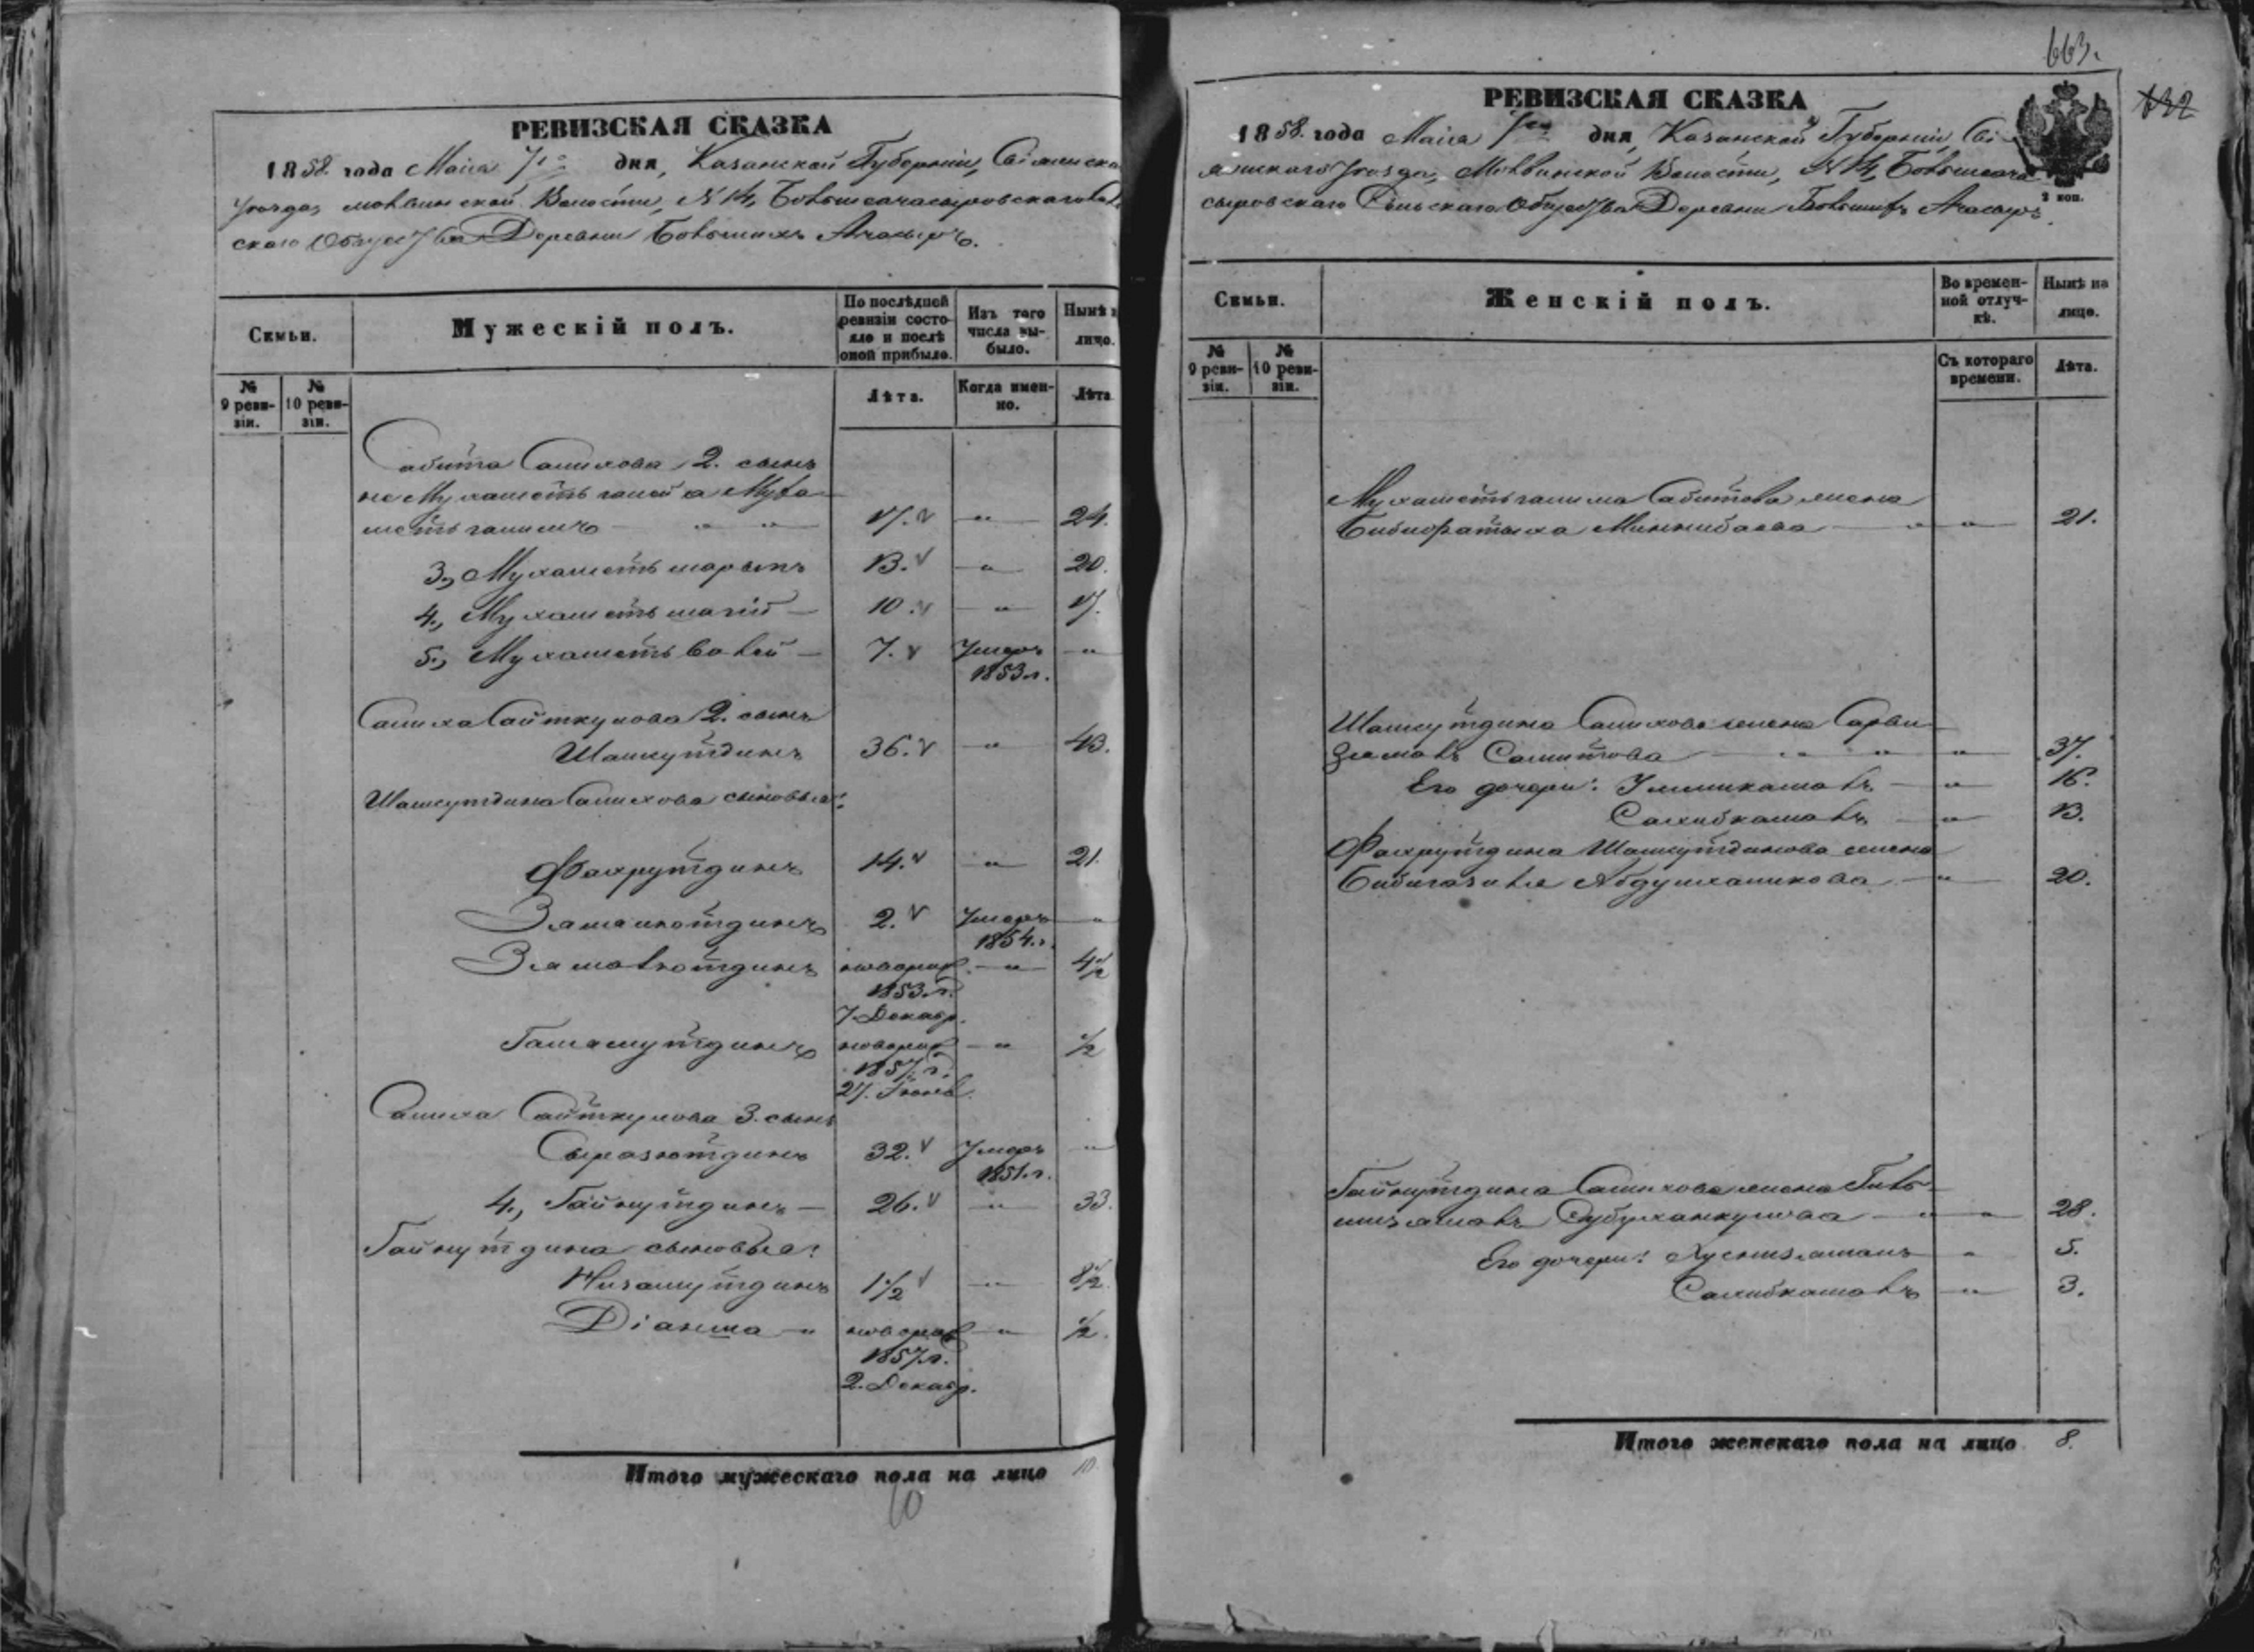 РЕВИЗСКАЯ СКАЗКА
1858 года Маия 7го дня, Казанской Губерніи, Свіяжска
Уезда, Молвинской Волости, N 14, Большеачасыровскаго Сель
скаго Общества Деревни Большихъ Ачасыръ.
Семьи.
Мужескій полъ.
По послѣдней ревизіи состояло и послѣ оной прибыло.
Изъ того числа выбыло.
Нынѣ на лицо.
№ 9 ревизіи.
№ 10 ревизіи.
Лѣта.
Когда именно.
Лѣта
Сабита Салихова 2. сынъ
не Мухаметьганей а Муха-
метьгалимъ 17. " 24.
3., Мухаметьшарыпъ 13. " 20.
4., Мухаметьшагій 10. " 17.
5., Мухаметьвалей 7. Умеръ "
1853 г.
Салиха Сайткулова 2. сынъ
Шамсутдинъ 36. " 43.
Шамсутдина Салихова сыновья:
Фахрутдинъ 14. " 21.
Замалютдинъ 2. Умеръ "
1854. г.
Зямалютдинъ новорож. " 4 1/2
1853. г.
7. Декабр.
Гамамутдинъ новорож. " 1/2
1857. г.
27. Іюня.
Салиха Сайткулова 3. сынъ
Сыразютдинъ 32. Умеръ "
1851. г.
4., Гайнутдинъ 26. " 33.
Гайнутдина сыновья:
Низамутдинъ 1 1/2 " 8 1/2
Діанша новорож " 1/2.
1857. г.
2. Декабр.
Итого мужескаго пола на лицо 10.
10
663.
132
РЕВИЗСКАЯ СКАЗКА
1858. года Маия 7го дня, Казанской Губерніи, Сві-
яжскаго Уезда, Молвинской Волости, N 14, Большеача-
сыровскаго Сельскаго Общества Деревни Большихъ Ачасыръ.
2 коп.
Семьи.
Женскій полъ.
Во временной отлучкѣ.
Нынѣ на лицо.
№ 9 ревизіи.
№ 10 ревизіи.
Съ котораго времени.
Лѣта.
Мухаметьгалима Сабитова жена
Бибифатыха Миннибаева " 21.
Шамсутдина Салихова жена Сарби-
зямалъ Салитова " 37.
Его дочери: Уммикамалъ " 16.
Сахибкамалъ " 13.
Фахрутдина Шамсутдинова жена
Бибигазиля Абдулханикова " 20.
Гайнутдина Салихова жена Гиль-
мизямалъ Губулханкулова " 28.
Его дочери: Хуснизаманъ " 5.
Сахибкамалъ " 3.
Итого женскаго пола на лицо 8.